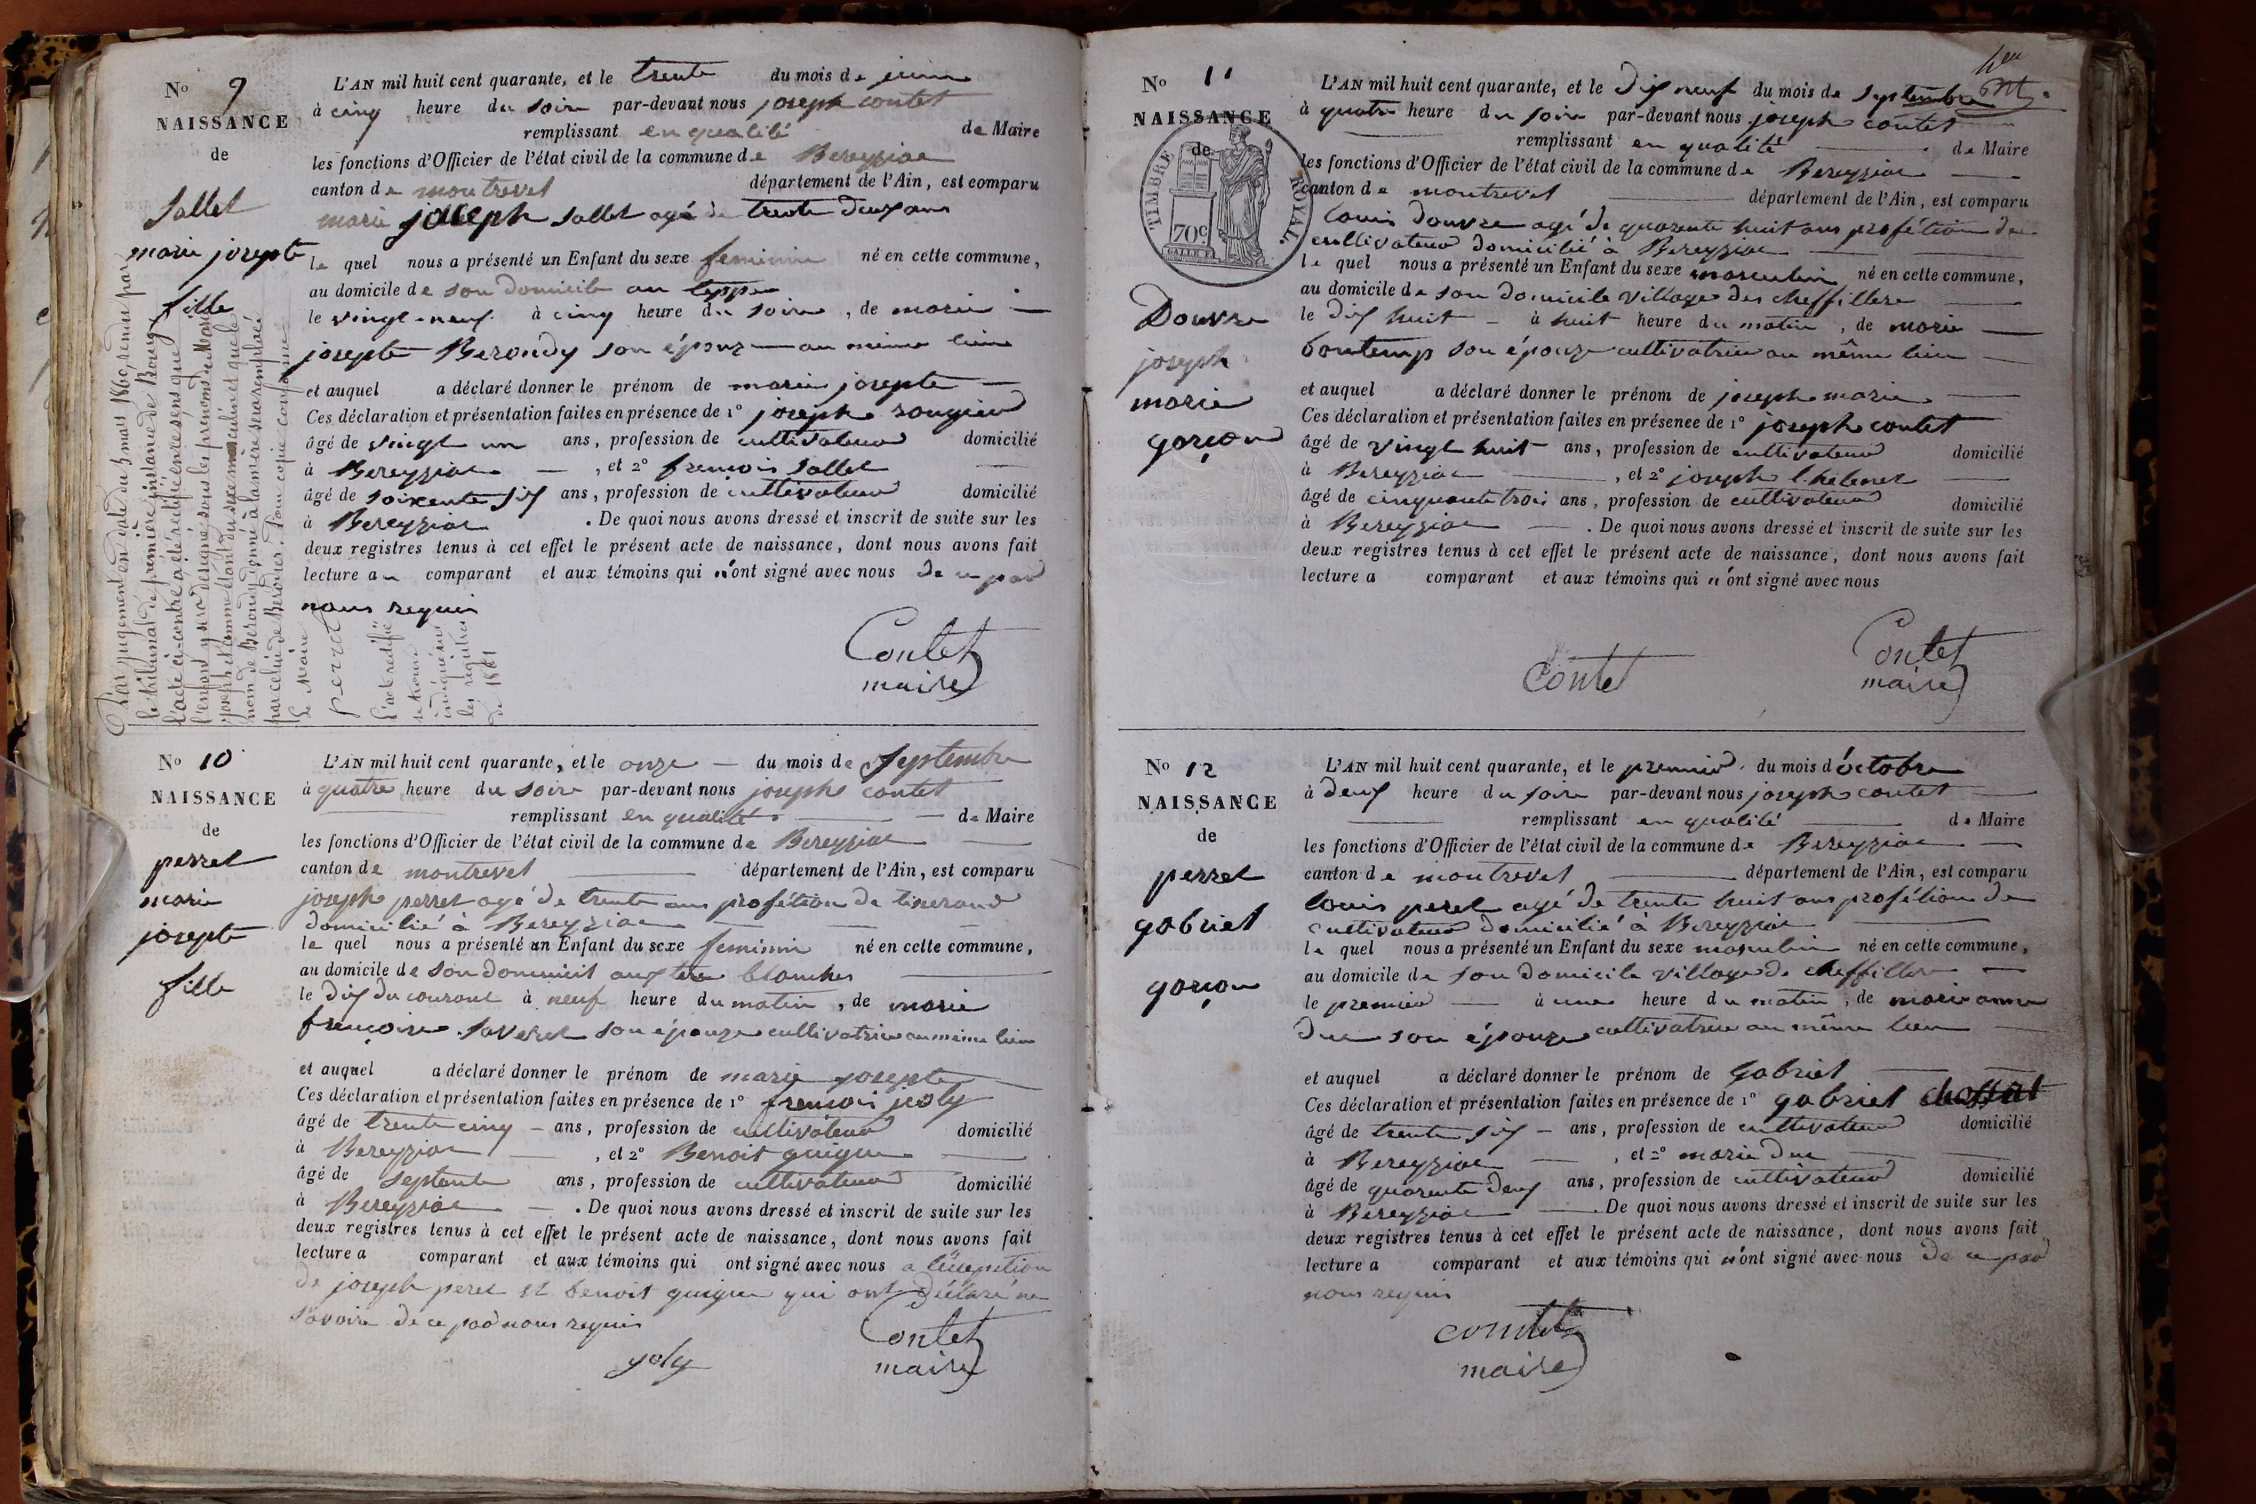 No 9
NAISSANCE
de
Sallet
marie josepte
fille
L'AN mil huit cent quarante, et le trente du mois de juin
à cinq heure du soir par-devant nous joseph contet
remplissant en qualité de Maire
les fonctions d'Officier de l'état civil de la commune de Bereyziac
canton de montrevel département de l'Ain, est comparu
marie joseph Sallet agé de trente deux ans
le quel nous a présenté un Enfant du sexe feminin né en cette commune,
au domicile de son domicile au
le vingt-neuf à cinq heure du soire, de marie
josepte Berondy son épouz au même lieu
et auquel a déclaré donner le prénom de marie josepte
Ces déclaration et présentation faites en présence de 1° joseph
âgé de vingt un ans, profession de cultivateur domicilié
à Bereyziac, et 2° francois Sallet
âgé de soixente six ans, profession de cultivateur domicilié
à Bereyziac . De quoi nous avons dressé et inscrit de suite sur les
deux registres tenus à cet effet le présent acte de naissance, dont nous avons fait
lecture au comparant et aux témoins qui n'ont signé avec nous de ce par
nous requis
Contet
maire
Par jugement en date du 5 mars 1860, rendu par
le tribunal de première instance de Bourg,
l'acte ci-contre a été rectifié en ce sens que
l'enfant y sera designé sous les prénoms de Marie
Joseph et comme étant du sexe masculin et que le
nom de Berondy donné à la mère sera remplacé
par celui de . Pour copie conforme
Le Maire
perret
L'acte rectifié
se trouve
les registres
de 1861
No 10
NAISSANCE
de
perret
marie
josepte
fille
L'AN mil huit cent quarante, et le onze du mois de Septembre
à quatre heure du soir par-devant nous joseph contet
remplissant en qualité de Maire
les fonctions d'Officier de l'état civil de la commune de Bereyziac
canton de montrevel département de l'Ain, est comparu
joseph perret agé de trente ans profétion de tiserand
domicilié à Bereyziac
le quel nous a présenté un Enfant du sexe feminin né en cette commune,
au domicile de son domicil aux blanches
le dix du courant à neuf heure du matin, de marie
françoise Saveret son épouze cultivatrice au même lieu
et auquel a déclaré donner le prénom de marie josepte
Ces déclaration et présentation faites en présence de 1° francois joly
âgé de trente cinq ans, profession de cultivateur domicilié
à Bereyziac, et 2° Benoit guigue
âgé de septente ans, profession de cultivateur domicilié
à Bereyziac . De quoi nous avons dressé et inscrit de suite sur les
deux registres tenus à cet effet le présent acte de naissance, dont nous avons fait
lecture a comparant et aux témoins qui ont signé avec nous a l'éxception
de joseph peret et benoit guigue qui ont déclaré ne
savoire de ce par nous requis
joly
Contet
maire
No 11
NAISSANCE
de
TIMBRE ROYAL
70c
Douvre
joseph
marie
garçon
L'AN mil huit cent quarante, et le dix neuf du mois de Septembre
à quatre heure du soir par-devant nous joseph contet
remplissant en qualité de Maire
les fonctions d'Officier de l'état civil de la commune de Bereyziac
canton de montrevel département de l'Ain, est comparu
louis douvre agé de quarente huit ans profétion de
cultivateur domicilié à Bereyziac
le quel nous a présenté un Enfant du sexe masculin né en cette commune,
au domicile de son domicile village des cheffillere
le dix huit à huit heure du matin, de marie
bontemp son épouze cultivatrice au même lieu
et auquel a déclaré donner le prénom de joseph marie
Ces déclaration et présentation faites en présence de 1° joseph contet
âgé de vingt huit ans, profession de cultivateur domicilié
à Bereyziac, et 2° joseph
âgé de cinquante trois ans, profession de cultivateur domicilié
à Bereyziac . De quoi nous avons dressé et inscrit de suite sur les
deux registres tenus à cet effet le présent acte de naissance, dont nous avons fait
lecture a comparant et aux témoins qui n'ont signé avec nous
Contet
Contet
maire
No 12
NAISSANCE
de
perret
gabriel
garçon
L'AN mil huit cent quarante, et le premier du mois d'octobre
à deux heure du soire par-devant nous joseph contet
remplissant en qualité de Maire
les fonctions d'Officier de l'état civil de la commune de Bereyziac
canton de montrevel département de l'Ain, est comparu
louis peret agé de trente huit ans profétion de
cultivateur domicilié à Bereyziac
le quel nous a présenté un Enfant du sexe masculin né en cette commune,
au domicile de son domicile village de cheffillere
le premier à une heure du matin, de marie anne
duc son épouze cultivatrice au même lieu
et auquel a déclaré donner le prénom de Gabriel
Ces déclaration et présentation faites en présence de 1° gabriel chossat
âgé de trente six ans, profession de cultivateur domicilié
à Bereyziac, et 2° marie duc
âgé de quarente deux ans, profession de cultivateur domicilié
à Bereyziac . De quoi nous avons dressé et inscrit de suite sur les
deux registres tenus à cet effet le présent acte de naissance, dont nous avons fait
lecture a comparant et aux témoins qui n'ont signé avec nous de ce par
nous requis
contet
maire